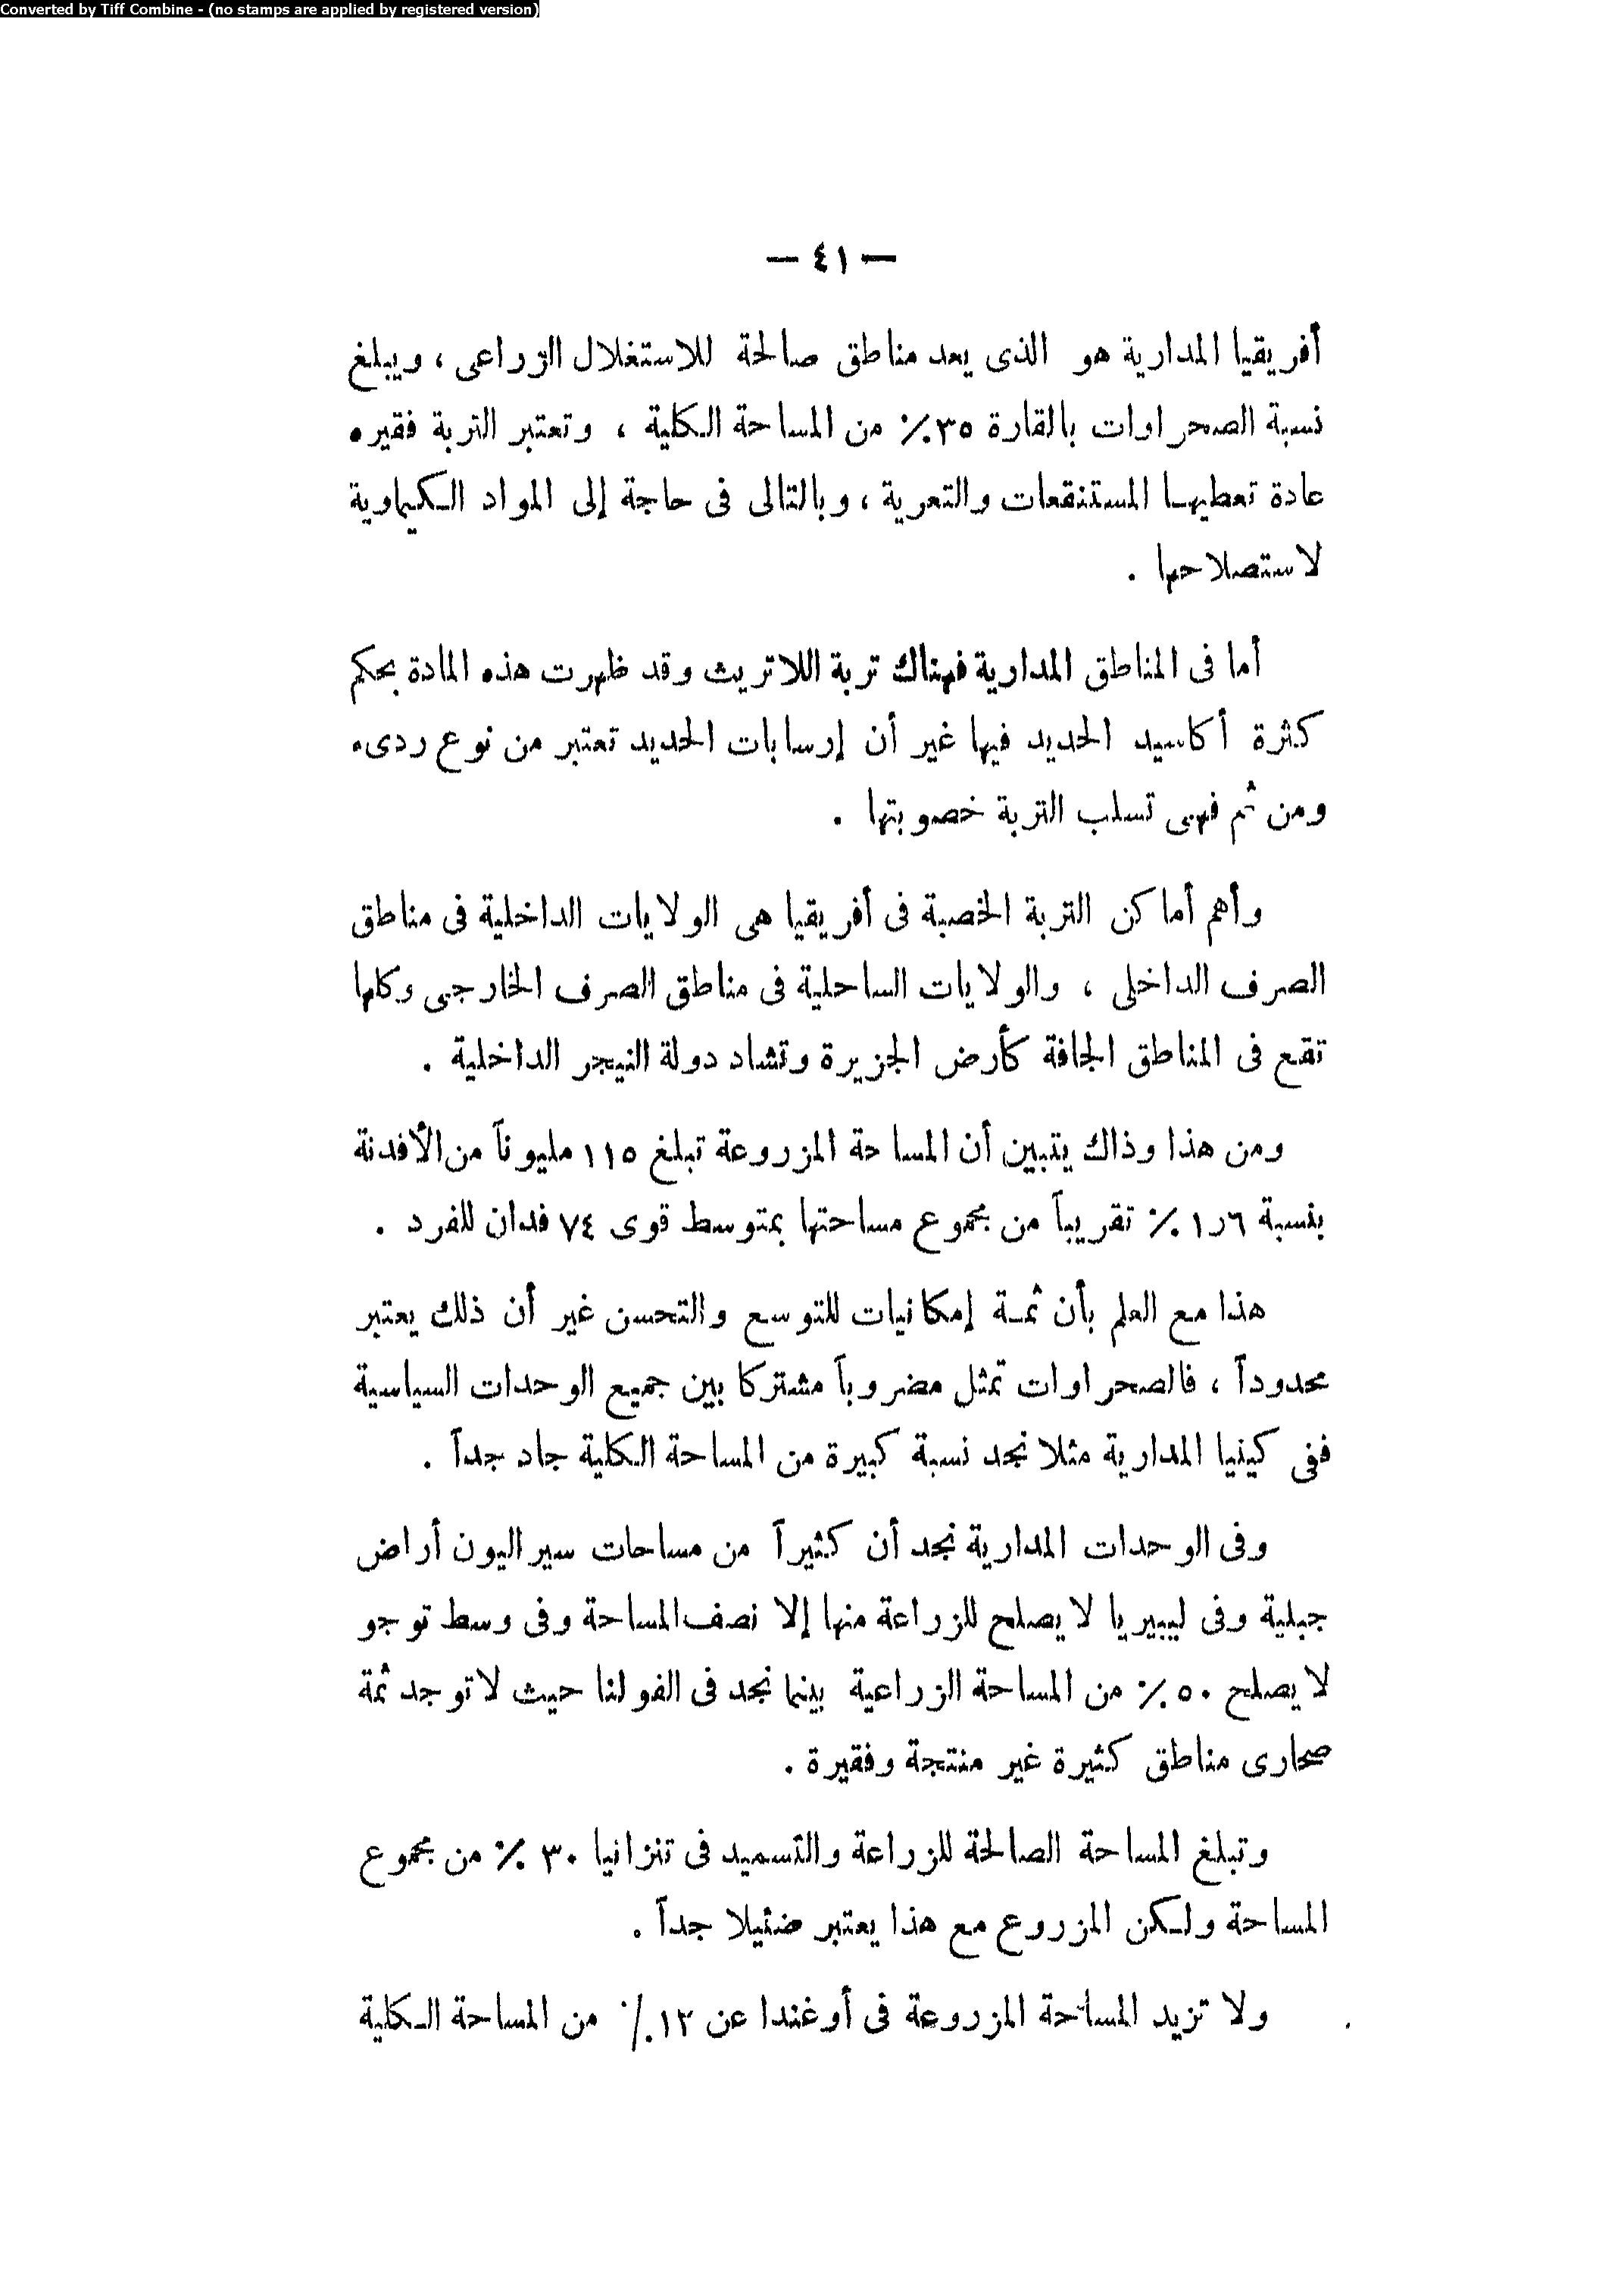 Converted by Tiff Combine - (no stamps are applied by registered version)
— ٤١ —
أفريقيا المدارية هو الذى يعد مناطق صالحة للاستغلال الزراعى ، ويبلغ
نسبة الصحراوات بالقارة ٣٥٪ من المساحة الكلية ، وتعتبر التربة فقيره
عادة تعطيها المستنقعات والتعرية ، وبالتالى فى حاجة إلى المواد الكيماوية
لاستصلاحها .
أما فى المناطق المدارية فهناك تربة اللاتريث وقد ظهرت هذه المادة بحكم
كثرة أكاسيد الحديد فيها غير أن إرسابات الحديد تعتبر من نوع ردىء
ومن ثم فهى تسلب التربة خصوبتها .
وأهم أماكن التربة الخصبة فى أفريقيا هى الولايات الداخلية فى مناطق
الصرف الداخلى ، والولايات الساحلية فى مناطق الصرف الخارجى وكلها
تقع فى المناطق الجافة كأرض الجزيرة وتشاد دولة النيجر الداخلية .
ومن هذا وذاك يتبين أن المساحة المزروعة تبلغ ١١٥ مليوناً من الأفدنة
بنسبة ١٫٦ ٪ تقريباً من مجموع مساحتها بمتوسط قوى ٧٤ فدان للفرد .
هذا مع العلم بأن ثمة إمكانيات للتوسع والتحسن غير أن ذلك يعتبر
محدوداً ، فالصحراوات تمثل مضروباً مشتركا بين جميع الوحدات السياسية
ففى كينيا المدارية مثلا نجد نسبة كبيرة من المساحة الكلية جاد جداً .
وفى الوحدات المدارية نجد أن كثيراً من مساحات سيراليون أراض
جبلية وفى ليبيريا لا يصلح للزراعة منها إلا نصف المساحة وفى وسط توجو
لا يصلح ٥٠ ٪ من المساحة الزراعية بينما نجد فى الفولتا حيث لا توجد ثمة
صحارى مناطق كثيرة غير منتجة وفقيرة .
وتبلغ المساحة الصالحة للزراعة والتسميد فى تنزانيا ٣٠ ٪ من مجموع
المساحة ولكن المزروع مع هذا يعتبر ضئيلا جداً .
ولا تزيد المساحة المزروعة فى أوغندا عن ١٣٪ من المساحة الكلية